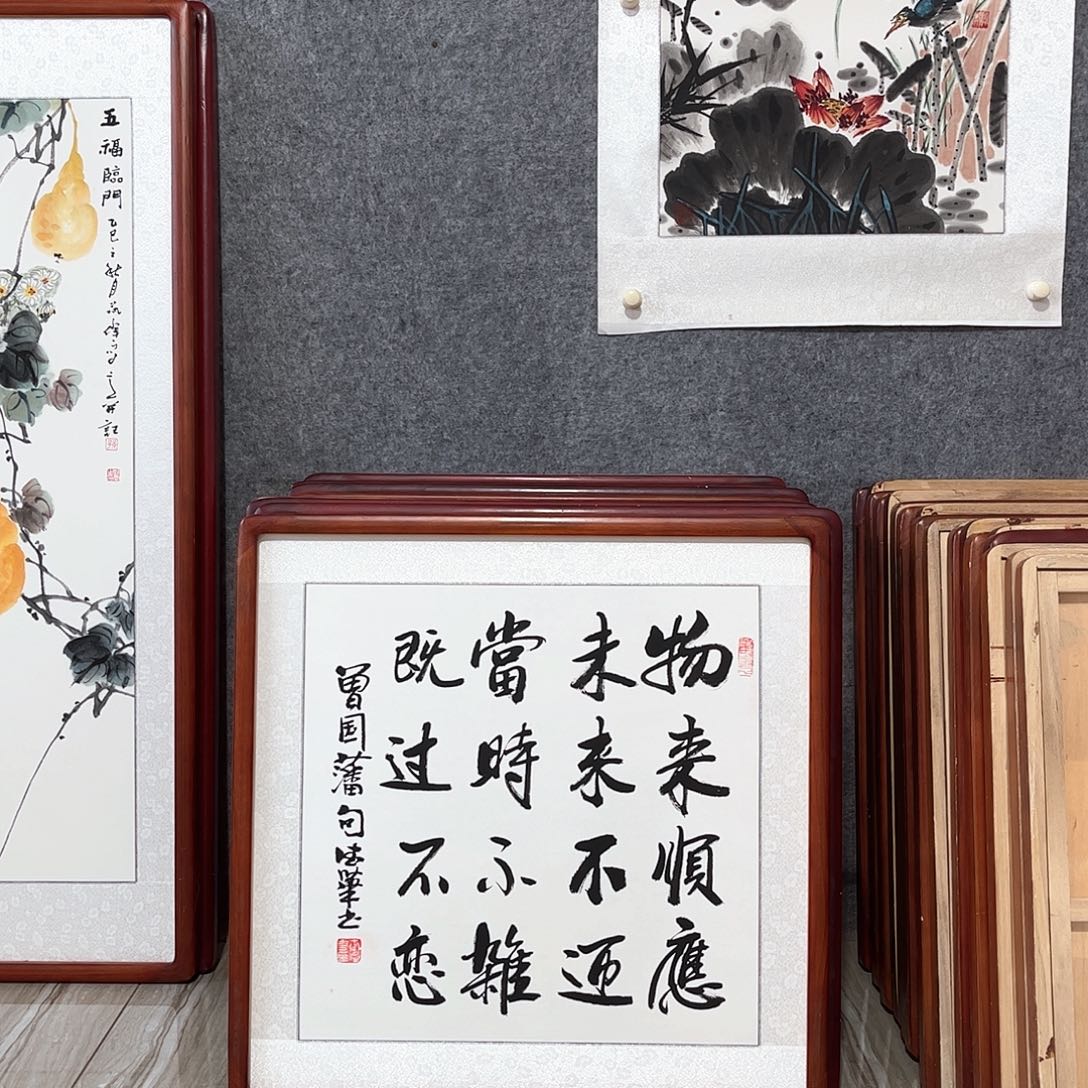 物来順應
未来不迎
當時不雜
既过不恋
曾国藩句
五福臨門
乙巳之秋月